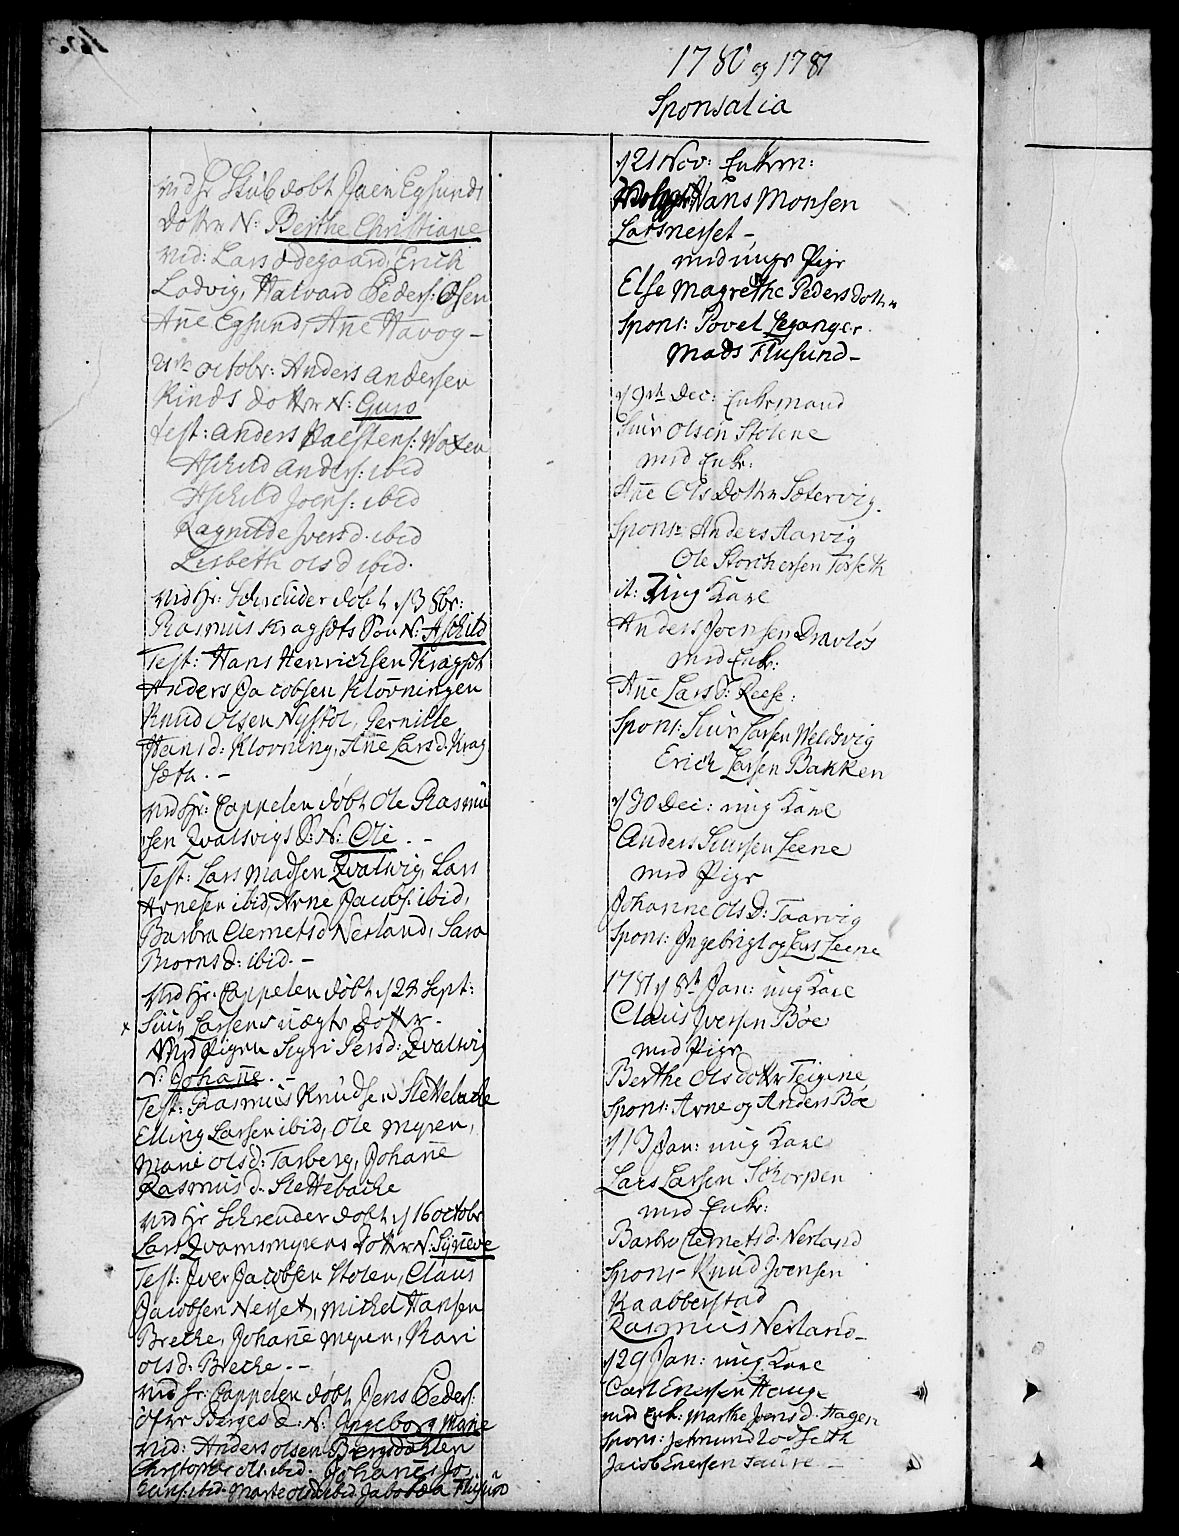 1780 og 1781
Sponsalia
ved Hr Stub døbt Joen Egsunds
Dotter N: Berthe Christiane
ved: Lars Ødegaard, Erich
Lodvig, Halvard Peders: Olsen
Añe Egsund, Añe Havog –
21th octobr: Anders Andersen
Rinds Dotter N: Guro
test: Anders Halstens: Woxen
Aschild Anders: ibid
Aschild Joens: ibid
Ragnilde Iversd. ibid
Lisbeth olsd ibid.
ved Hr: Schreuder døbt d 13 8br:
Rasmus Kragsets Søn N: Aschild
Test: Hans Henrichsen Kragset
Anders Jacobsen Kløvningen
Knud Olsen Nystøl, Pernille
Hansd: Klovning, Añe Larsd: Krag
sæth. –
ved Hr: Cappelen døbt Ole Rasmu
sen Qvalsvigs S: N: Ole. –
Test: Lars Madsen Qvalsvig, Lars
Arnesen ibid, Arne Jacobs: ibid,
Barbra Clemetsd Nerland, Sara
Biornsd: ibid. –
ved Hr. Cappelen døbt d 24 Sept:
x Siur Larsens uægte Dotter.
Med Pigen Sigri Persd: Qvalsvig
N: Johañe. –
Test: Rasmus Knudsen Slettebacke
Elling Larsen ibid, Ole Myren,
Mari olsd: Tarberg, Johañe
Rasmusd. Slettebacke
ved Hr Schreuder døbt d 16 octobr
Lars Qvamsmyrens Dotter N: Syñeve
Test: Iver Jacobsen Stolen, Claus
Jacobsen Nesset, Michel Hansen
Brecke, Johañe Myren, Kari
olsd: Brecke. –
ved Hr: Cappelen døbt Jens Peders:
øfre Berges D: N: Ingeborg Marie
vid: Anders olsen Bergsdahlen
Christopher ols: ibid. Johañes Jo
hans: ibid. Marte olsd ibid. Jabobæa Flusund
d 21 Nov: Enkem:
Hans Monsen
Larsnesset –
med unge Pige
Else Magrethe Pedersdotter
Spons: Povel Leganger
Mads Flusund –
d 9th Dec: Enkemand
Siur Olsen Stolene
med Enke:
Añe Olsdotter Sætervig.
Spons: Anders Aarvig
Ole Storchersen Torseth
it: Ung Karl
Anders Joensen Dravløs
med Enke:
Añe Larsd: Reese:
Spons: Siur Larsen Weldsvig
Erich Larsen Bakken
d 30 Dec: ung Karl
Anders Siursen Leene
med Pige
Johanne Olsd: Taarvig
Spons: Ingebrigt og Lars Leene
1781 d 8th Jan: ung Karl
Claus Iversen Bøe
med Pige
Berthe Olsdotter Teigene
Spons: Arne og Anders Bøe
d 13 Jan: ung Karl
Lars Larsen Schorpen
med Enke:
Barbro Clemetsd. Nerland
Spons – Knud Joensen
Kaabberstad
Rasmus Nerland –
d 29 Jan: ung Karl
Carl Enersen Hauge
med Enk: Marthe Joensd: Hagen
Spons: Jetmund Lodseth
Jacob Enersen Saure –